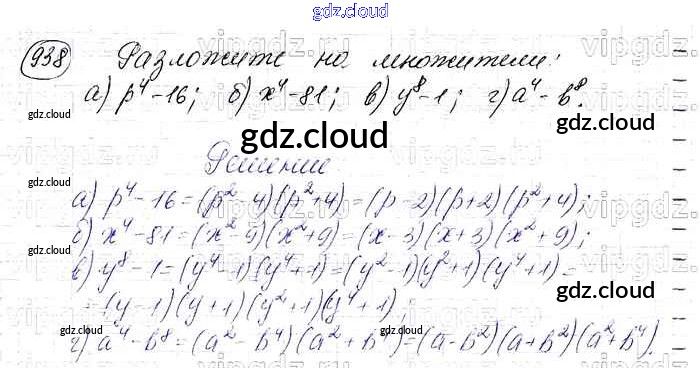 gdz.cloud
938 Разложите на множители:
а) p⁴-16; б) x⁴-81; в) y⁸-1; г) a⁴-b⁸.
gdz.cloud
gdz.cloud
gdz.cloud
Решение
gdz.cloud
а) p⁴-16=(p²-4)(p²+4)=(p-2)(p+2)(p²+4);
б) x⁴-81=(x²-9)(x²+9)=(x-3)(x+3)(x²+9);
gdz.cloud
в) y⁸-1=(y⁴-1)(y⁴+1)=(y²-1)(y²+1)(y⁴+1)=
gdz.cloud
=(y-1)(y+1)(y²+1)(y⁴+1);
gdz.cloud
gdz.cloud
г) a⁴-b⁸=(a²-b⁴)(a²+b⁴)=(a-b²)(a+b²)(a²+b⁴).